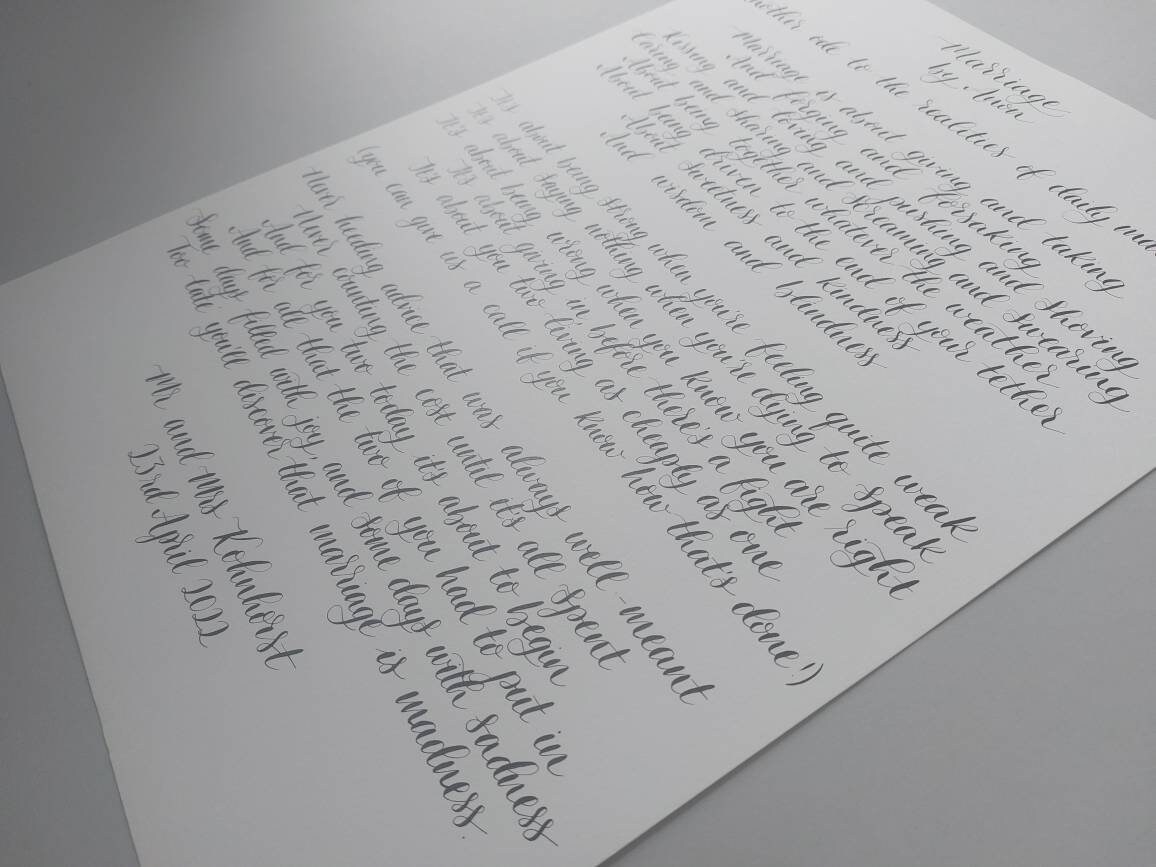 Marriage
by Anon
ode to the realities of daily
Marriage is about giving and taking
And forging and forsaking
Kissing and loving and pushing and shoving
Caring and sharing and screaming and swearing
About being together whatever the weather
About being driven to the end of your tether
About sweetness and kindness
And wisdom and blindness
It's about being strong when you're feeling quite weak
It's about saying nothing when you're dying to speak
It's about being wrong when you know you are right
It's about giving in before there's a fight
It's about you two living as cheaply as one
(you can give us a call if you know how that's done!)
Never heeding advice that was always well-meant
Never counting the cost until it's all spent
And for you two today it's about to begin
And for all that the two of you had to put in
Some days filled with joy, and some days with sadness
Too late you'll discover that marriage is madness.
Mr and Mrs Kohnhorst
23rd April 2022